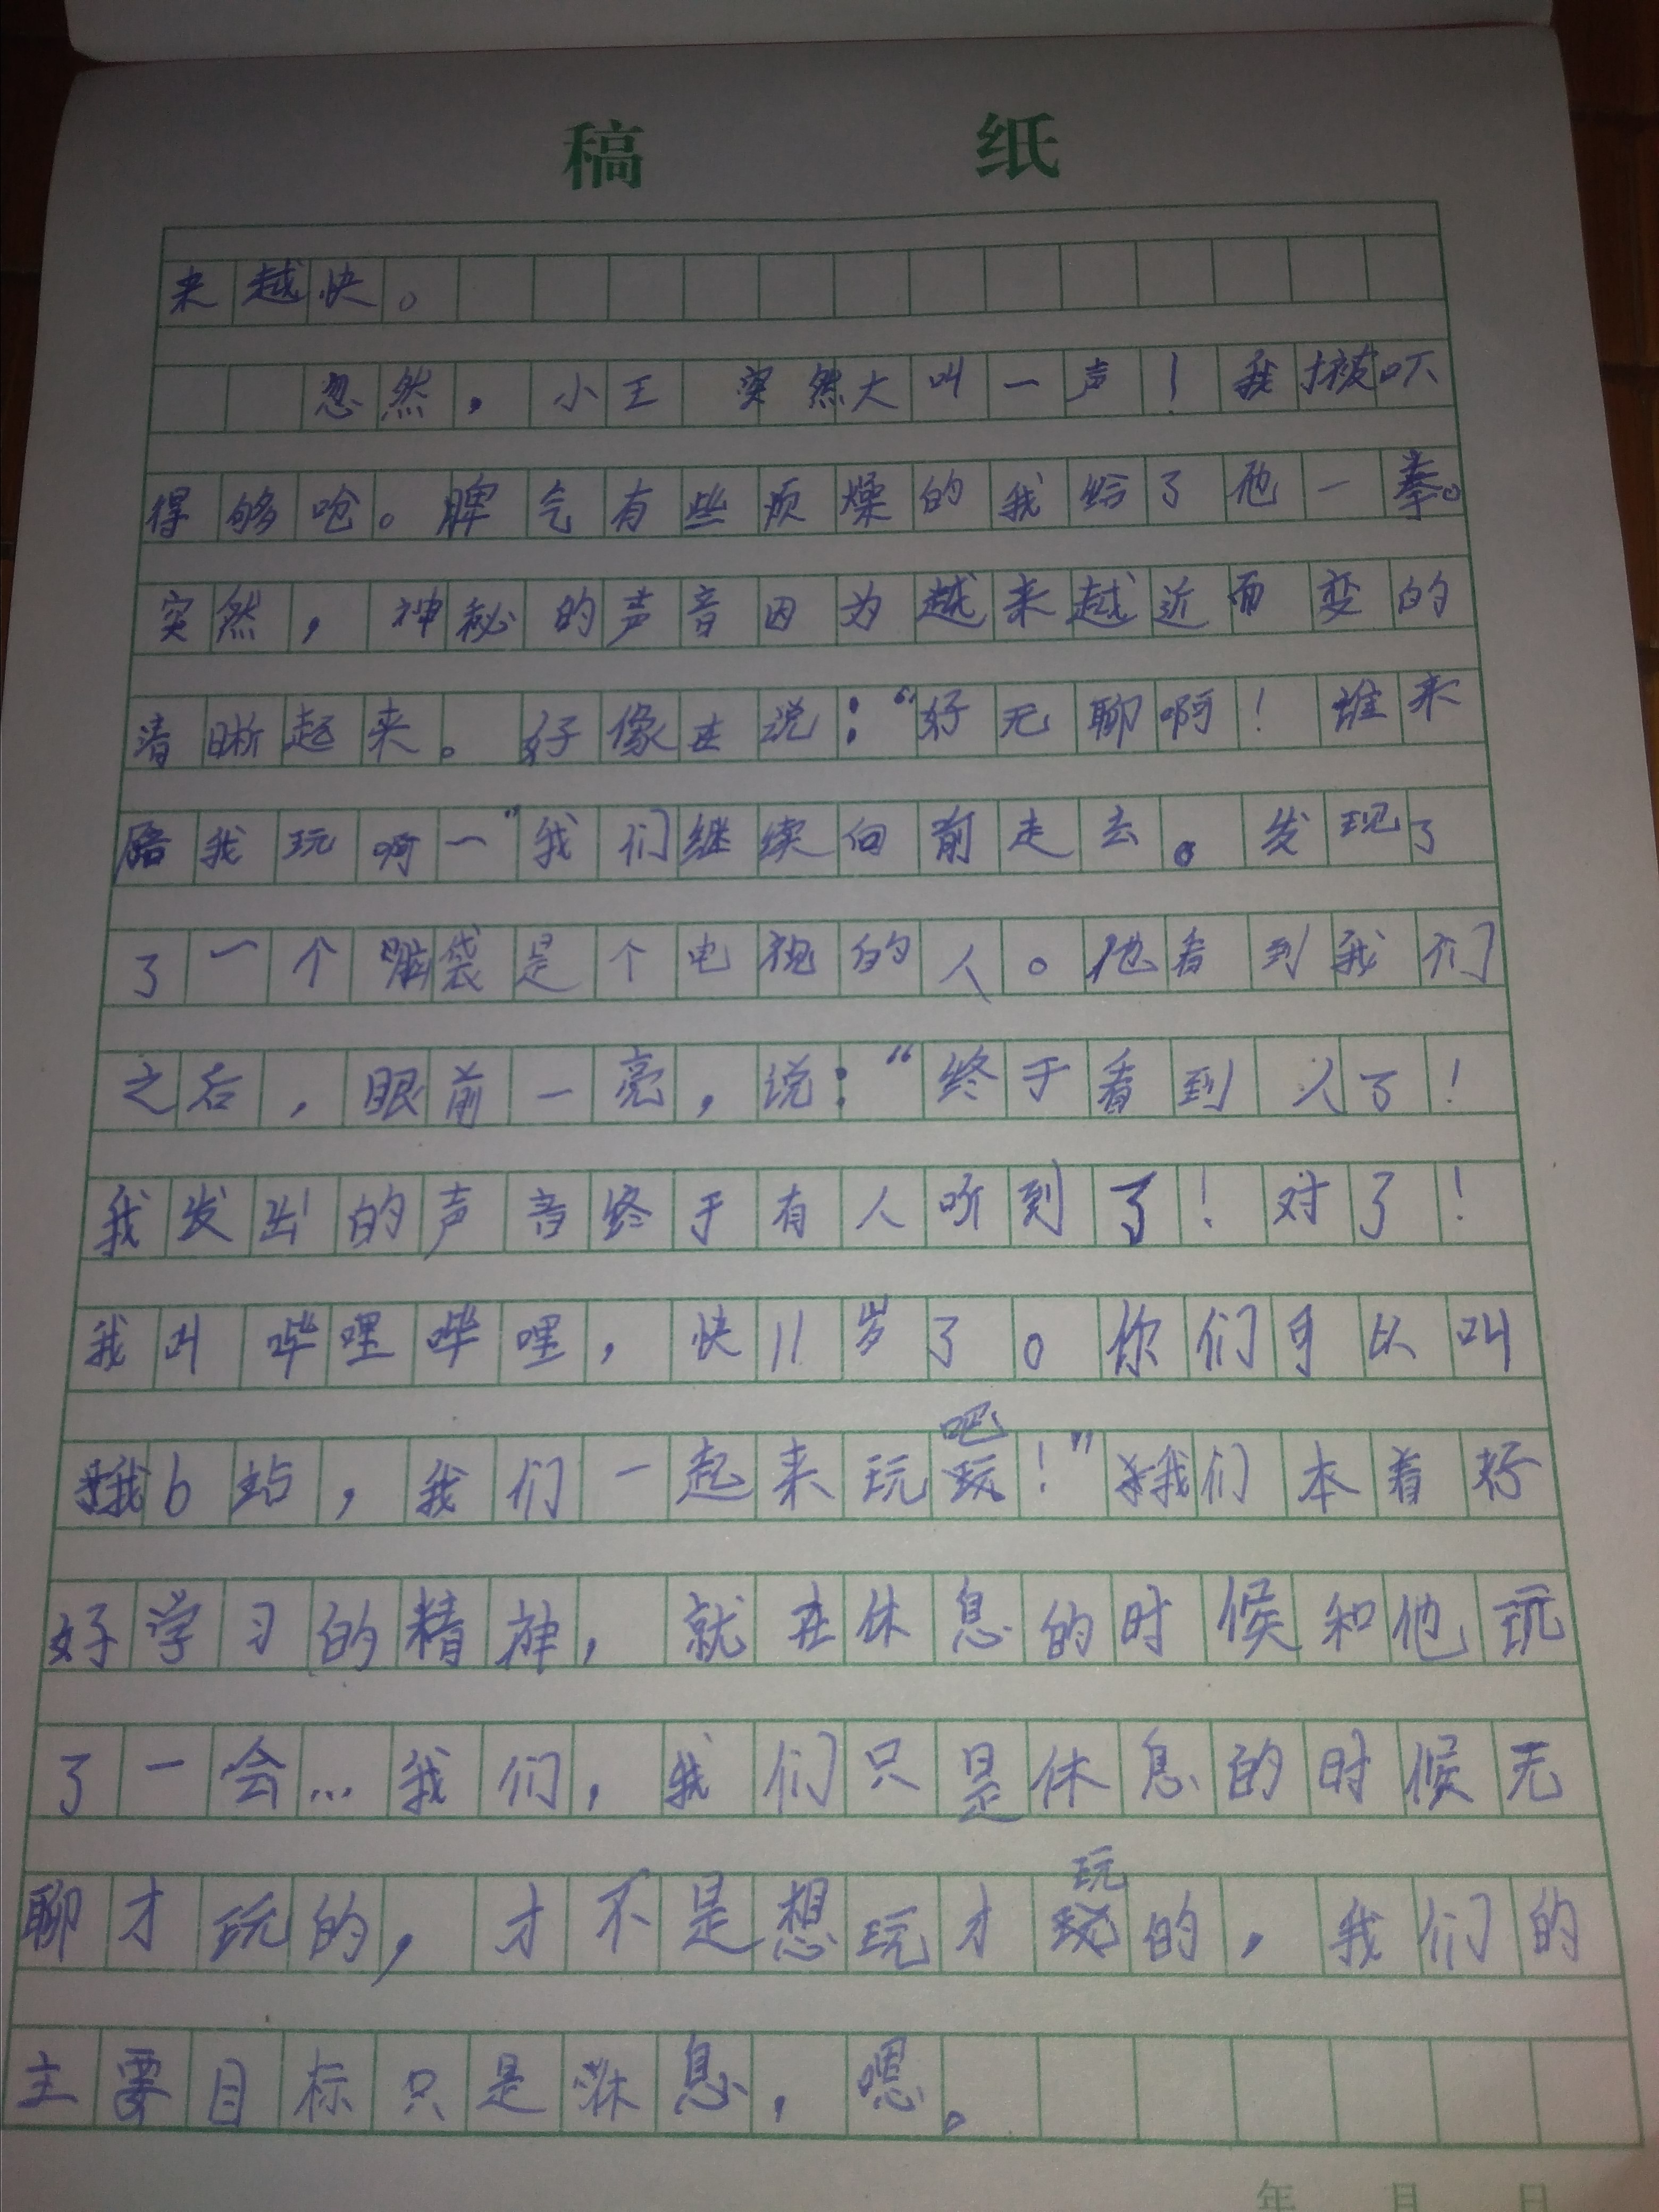 稿 纸
来越快。
忽然，小王突然大叫一声！我被吓
得够呛。脾气有些烦燥的我给了他一拳。
突然，神秘的声音因为越来越近而变的
清晰起来。好像在说：“好无聊啊！谁来
陪我玩啊一”我们继续向前走去。发现了
了一个脑袋是个电视的人。他看到我们
之后，眼前一亮，说：“终于看到人了！
我发出的声音终于有人听到了！对了！
我叫哔哩哔哩，快11岁了。你们可以叫
我b站，我们一起来玩吧！”我们本着好
好学习的精神，就在休息的时候和他玩
了一会…我们，我们只是休息的时候无
聊才玩的，才不是想玩才玩的，我们的
主要目标只是休息，嗯。
年 月 日